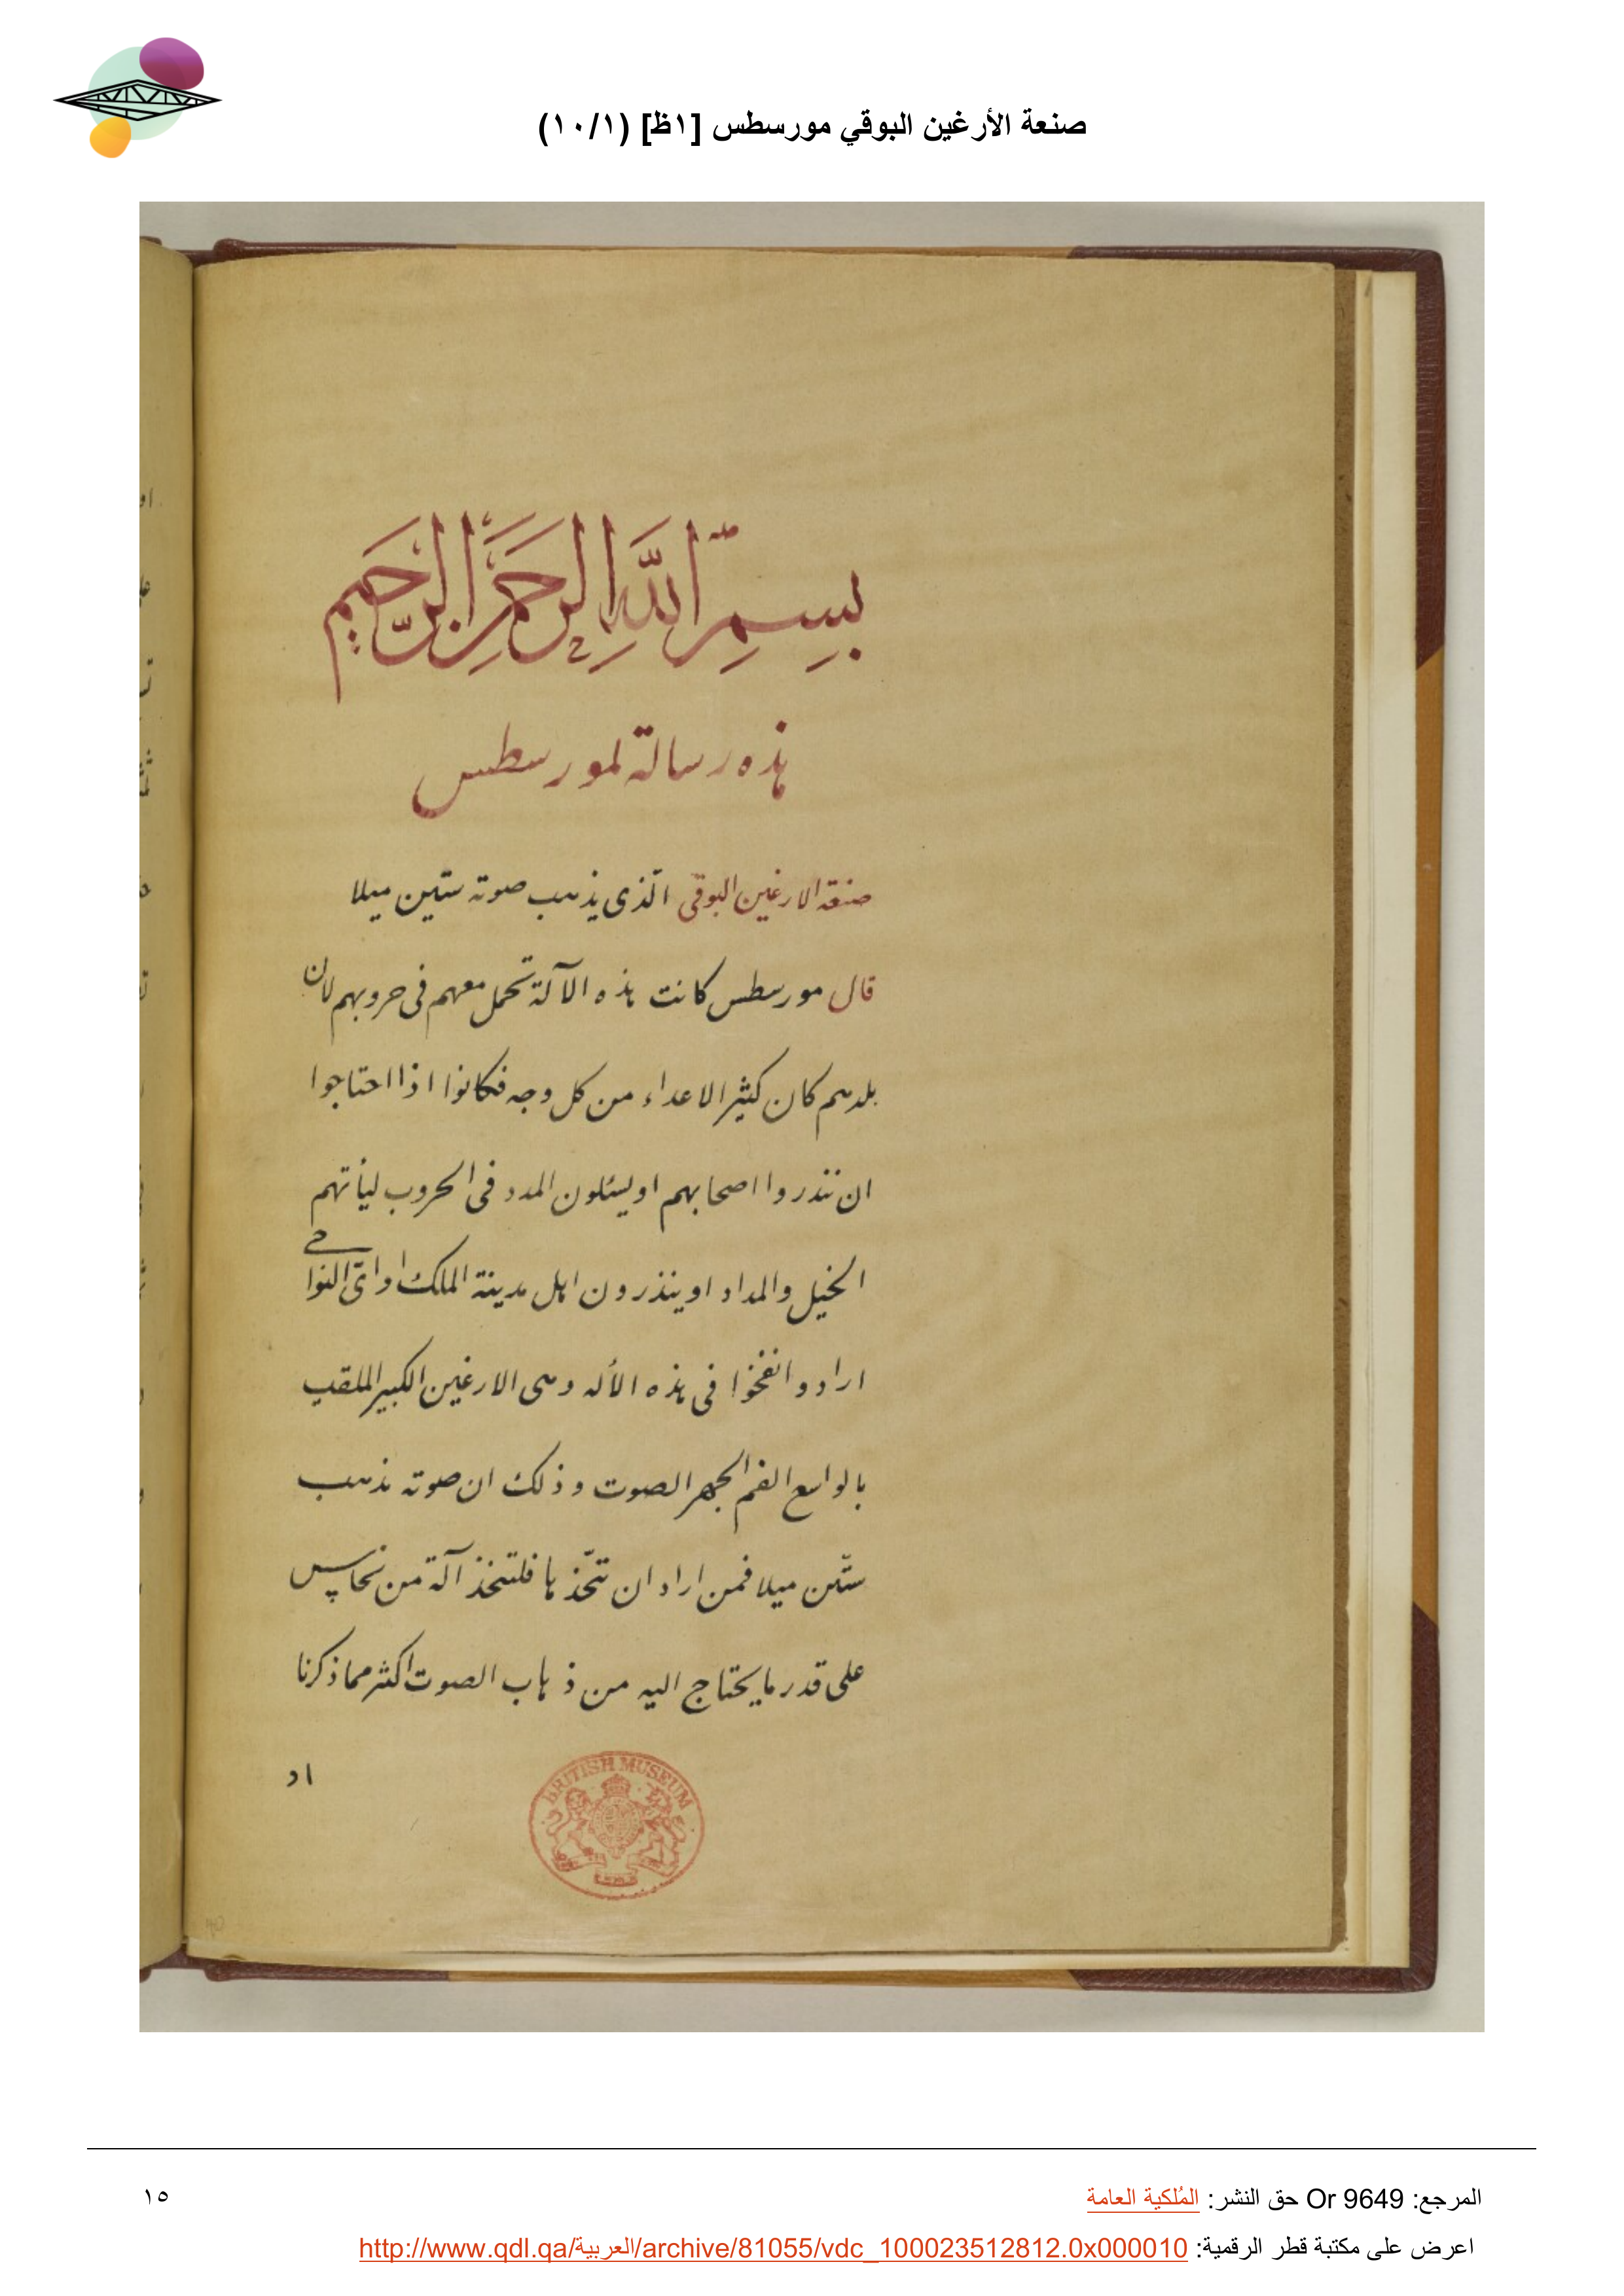 صنعة الأرغين البوقي مورسطس [١ظ] (١٠/١)
بِسِمِ اللَّهِ الرَحمَنِ الرَّحيمِ
هذه رسالة لمورسطس
صنعة الارغين البوقى الّذى يذهب صوته ستّين ميلا
قال مورسطس كانت هذه الآلة تحمل معهم فى حروبهم لان
بلدهم كان كثير الاعداء من كل وجه فكانوا اذا احتاجوا
ان ننذروا اصحابهم او يسئلون المدد فى الحروب ليأتهم
الخيل والمداد او ينذرون اهل مدينة الملك او اىّ النواحى
ارادوا نفخوا فى هذه الأله وهى الارغين الكبير الملقب
بالواسع الفم الجهر الصوت وذلك ان صوته يذهب
ستّين ميلا فمن اراد ان تتّخذها فلتتخذ آلة من نحاس
على قدر ما يحتاج اليه من ذهاب الصوت اكثر مما ذكرنا
او
BRITISH MUSEUM
المرجع: Or 9649 حق النشر: المُلكية العامة
١٥
اعرض على مكتبة قطر الرقمية: http://www.qdl.qa/العربية/archive/81055/vdc_100023512812.0x000010